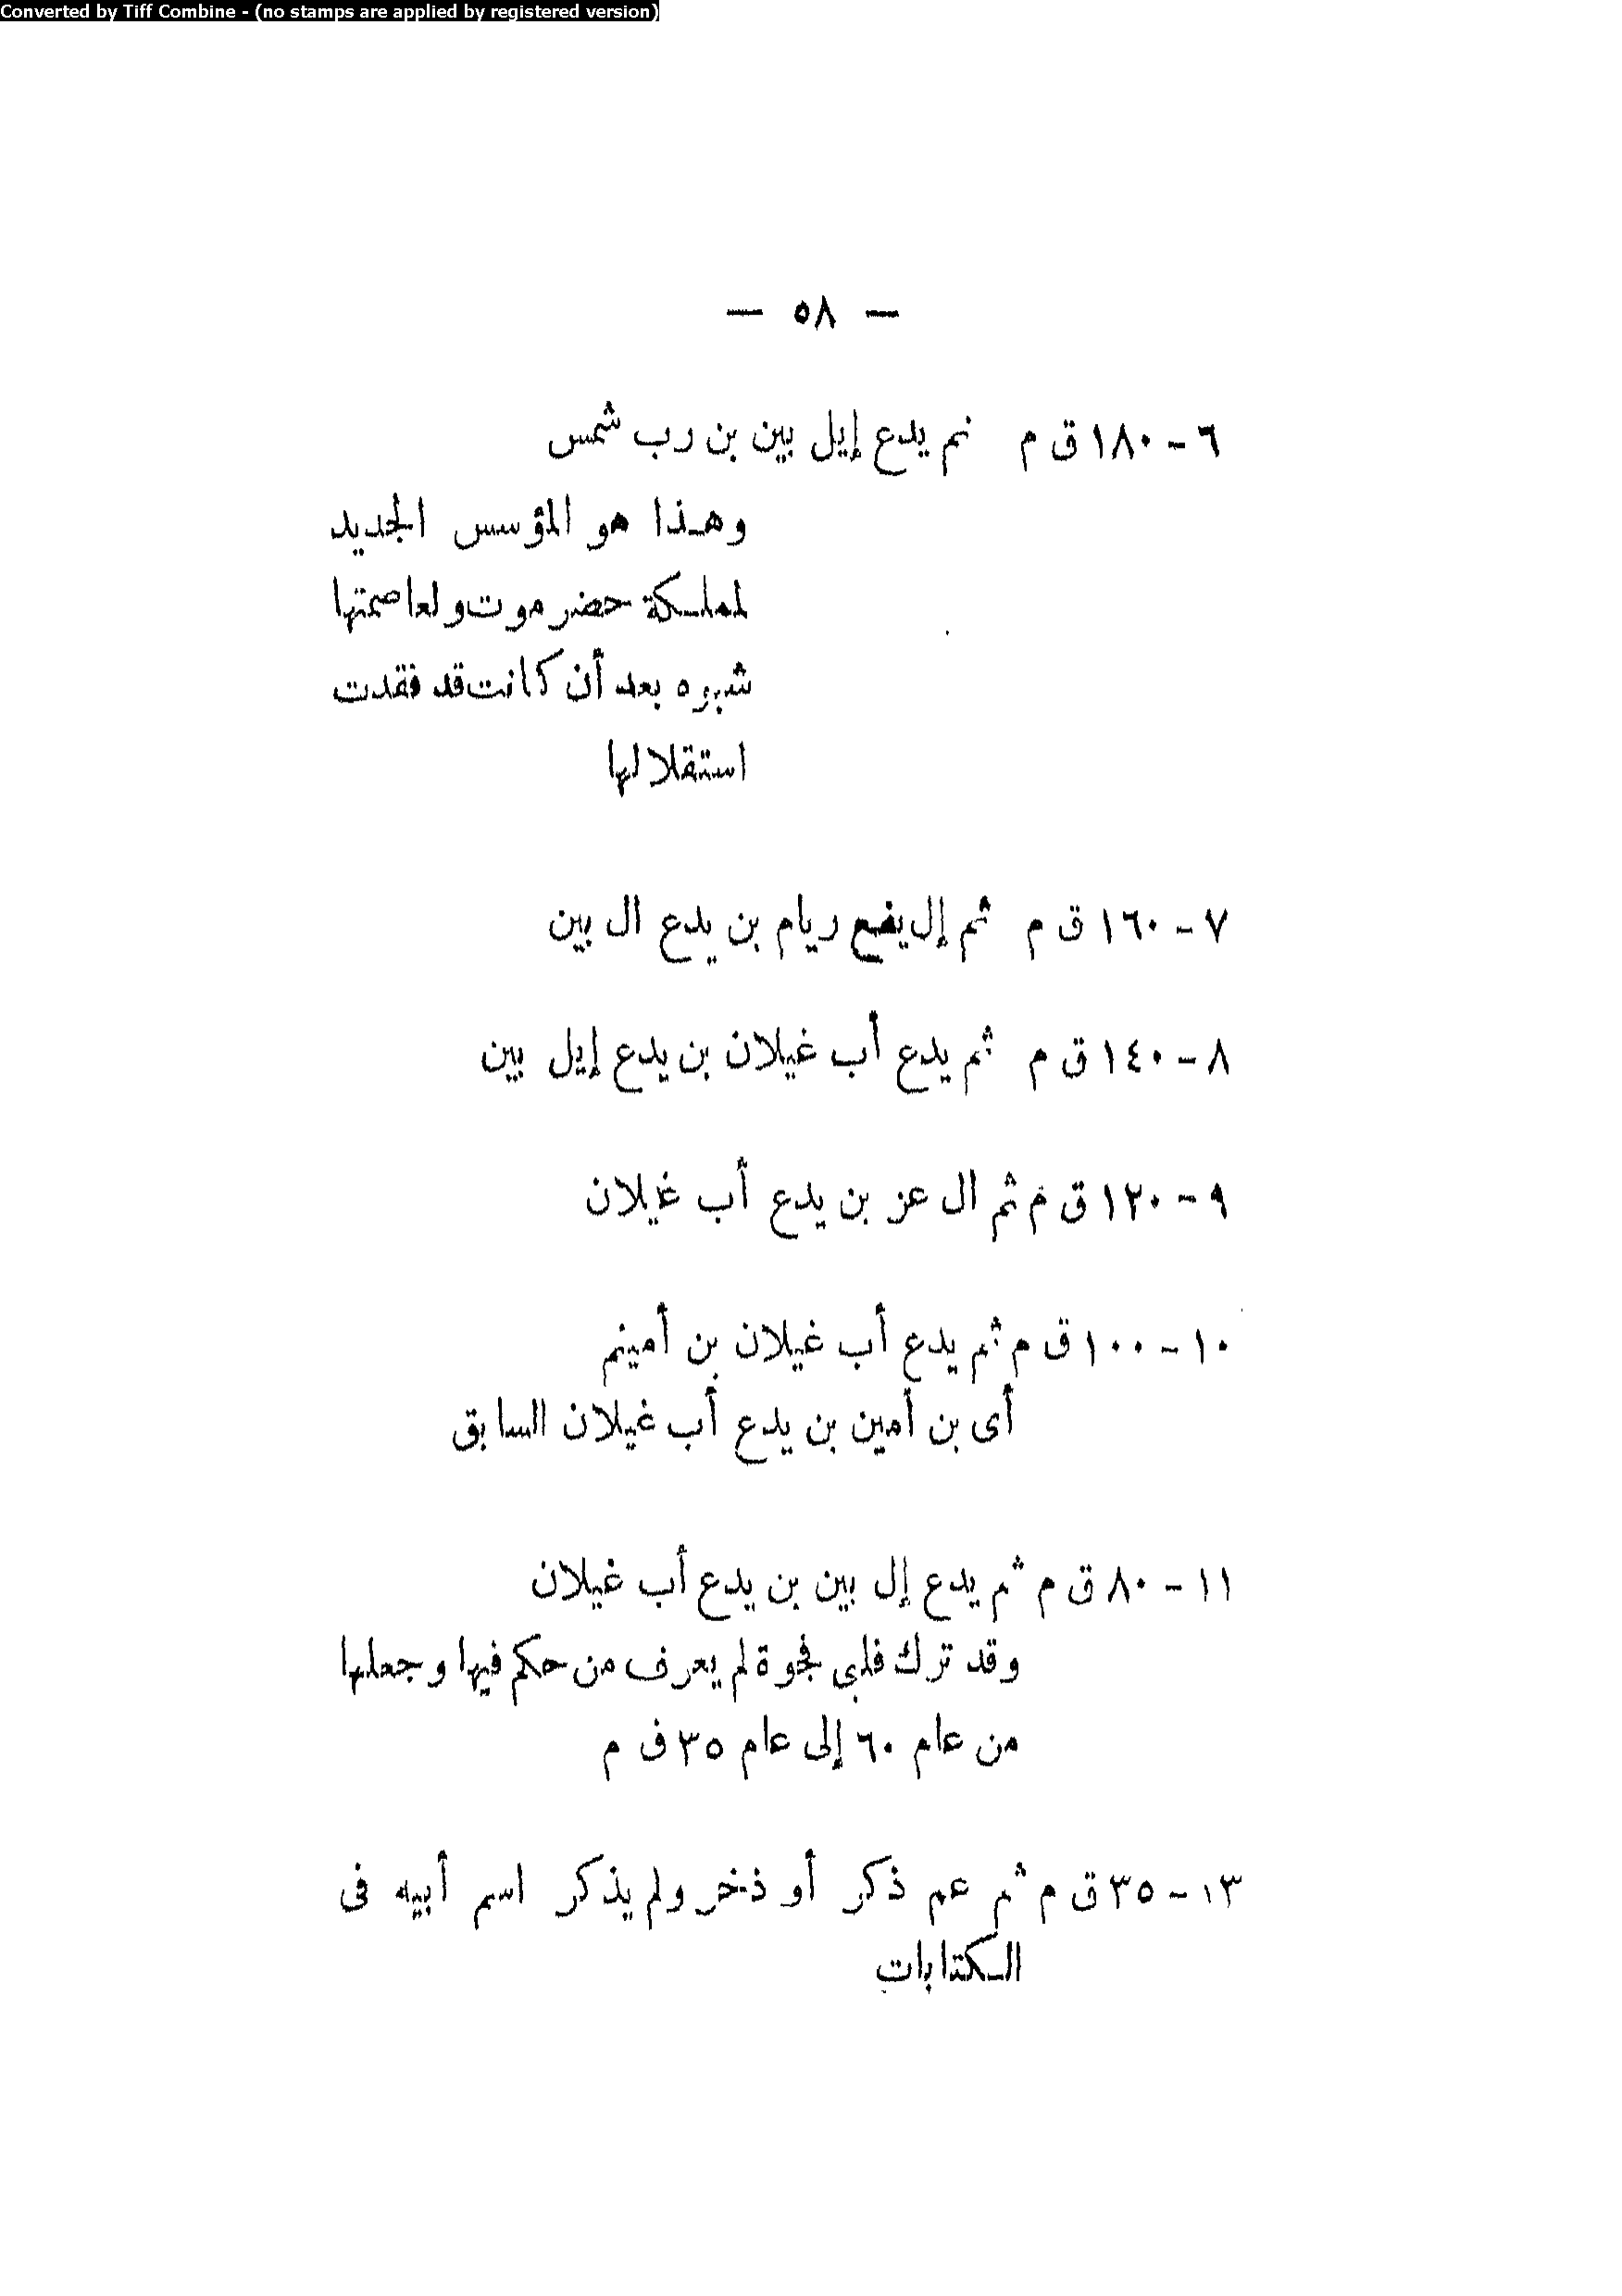 Converted by Tiff Combine - (no stamps are applied by registered version)
— ٥٨ —
٦ - ١٨٠ ق م ثم يدع إيل بين بن رب شمس
وهـذا هو المؤسس الجديد
لمملـكة حضر موت ولعاصمتها
شبوه بعد أن كانت قد فقدت
استقلالها
٧ - ١٦٠ ق م ثم إل يفع ريام بن يدع ال بين
٨ - ١٤٠ ق م ثم يدع أب غيلان بن يدع إيل بين
٩ - ١٢٠ ق م ثم ال عز بن يدع أب غيلان
١٠ - ١٠٠ ق م ثم يدع أب غيلان بن أمينم
أى بن أمين بن يدع أب غيلان السابق
١١ - ٨٠ ق م ثم يدع إل بين بن يدع أب غيلان
وقد ترك فلبى فجوة لم يعرف من حكم فيها وجعلها
من عام ٦٠ إلى عام ٣٥ ق م
١٣ - ٣٥ ق م ثم عم ذكر أو ذخر ولم يذكر اسم أبيه فى
الـكتابات